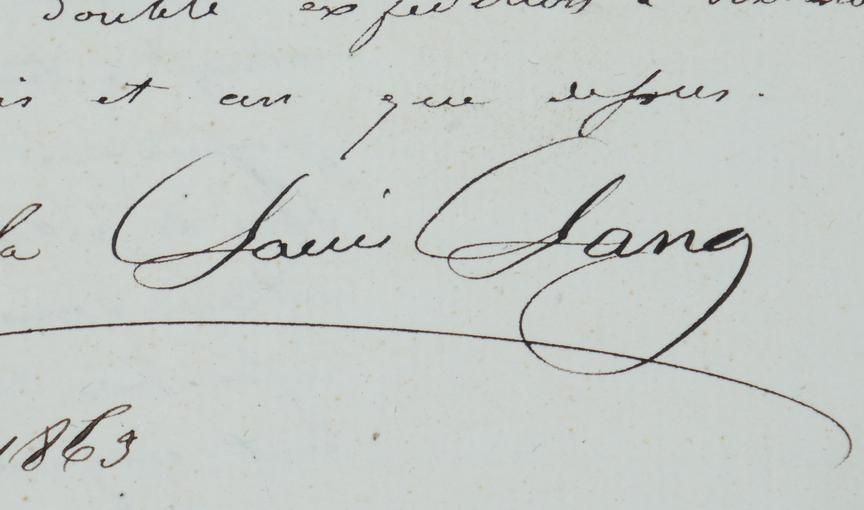 double expédition à
is et an que dessus.
la Louis Lang
1863